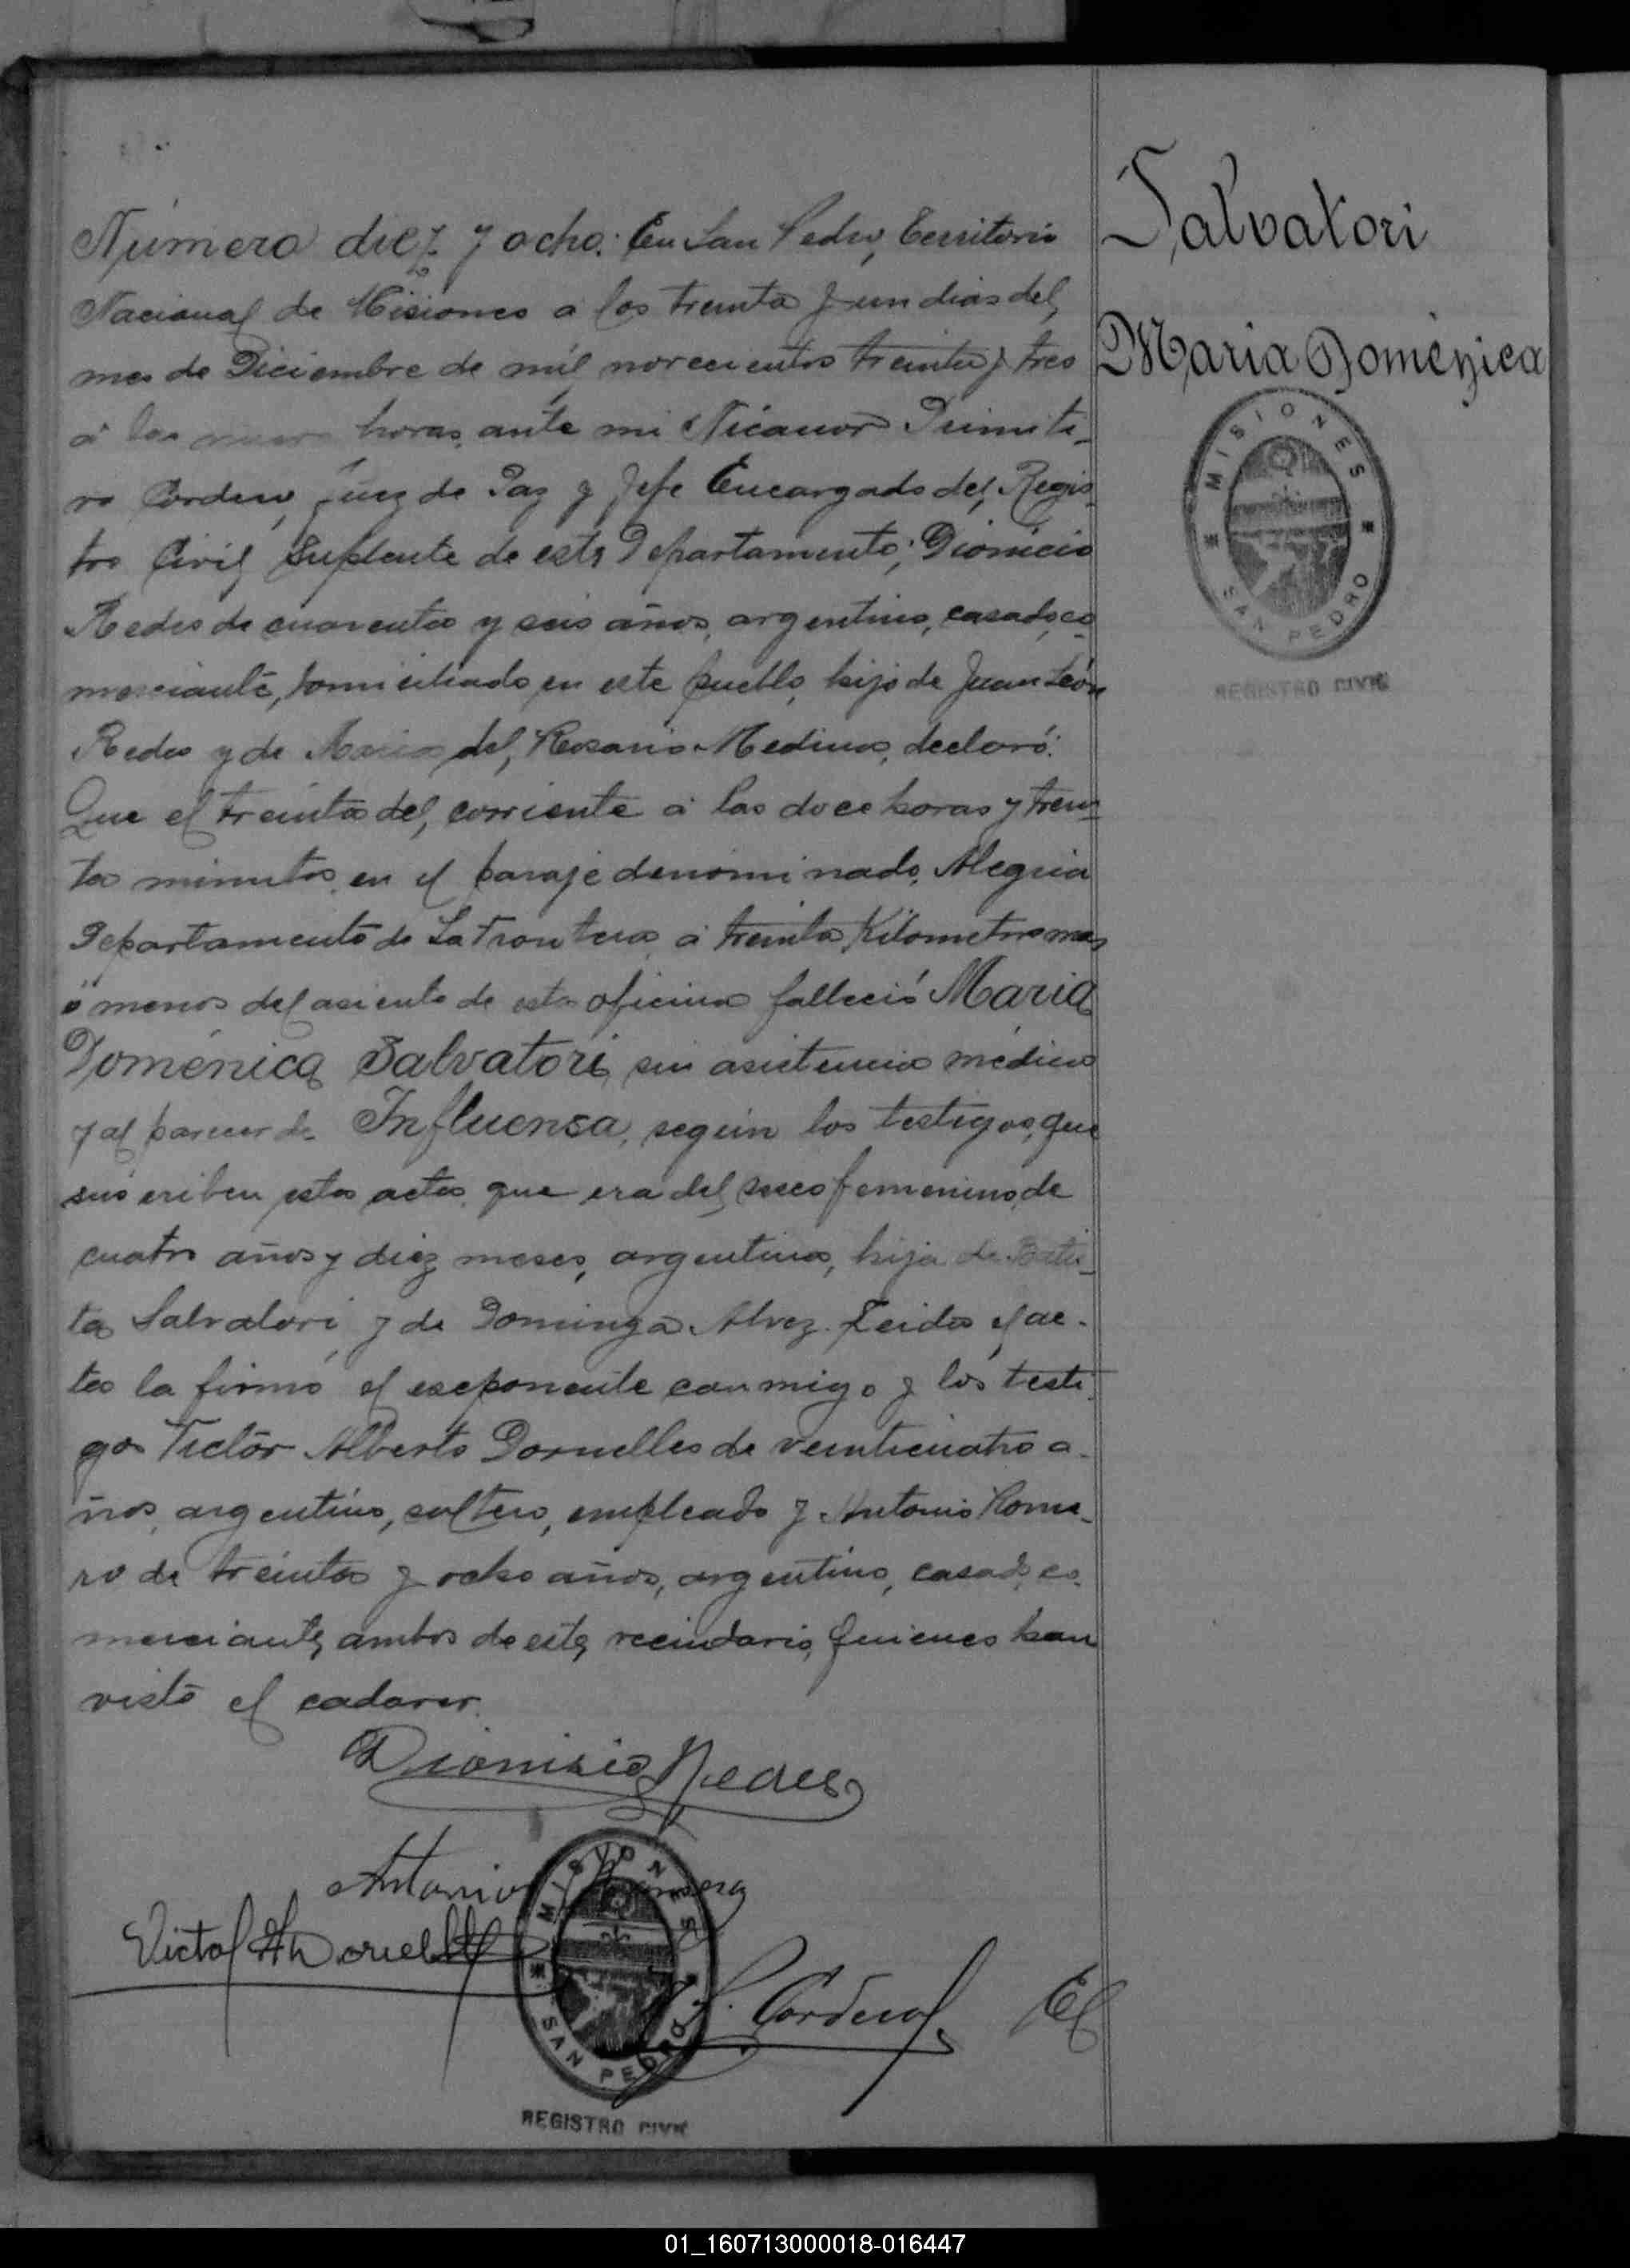 Número diez y ocho: En San Pedro, Territorio
Nacional de Misiones a los treinta y un dias del
mes de Diciembre de mil novecientos treinta y tres
a las horas, ante mi Nicanor Primiti-
vo Cordero, Juez de Paz y Jefe Encargado del Regis-
tro Civil Suplente de este Departamento; Dionicio
Redes de cuarenta y seis años, argentino, casado, co-
merciante, domiciliado en este pueblo, hijo de Juan León
Redes y de Maria del Rosario Medina, declaró:
Que el treinta del corriente a las doce horas y trein-
ta minutos en el paraje denominado, Alegria
Departamento de La Frontera a treinta Kilometros mas
o menos del asiento de esta oficina falleció Maria
Doménica Salvatori, sin asistencia médica
y al parecer de Influensa, según los testigos, que
suscriben esta acta, que era del secso femenino, de
cuatro años y diez meses, argentina, hija de Batis-
ta Salvatori y de Dominga Alvez. Leida el ac-
ta la firmó el exponente conmigo y los testi-
gos Victor Alberto Dornelles de veinticuatro a-
ños, argentino, soltero, empleado y Antonio Rome-
ro de treinta y ocho años, argentino, casado, co-
merciante, ambos de este vecindario, quienes han
visto el cadaver.
Dionisio Redes
Antonio Romero
Victor A Dornelles
Cordero
MISIONES
SAN PEDRO
REGISTRO CIVIL
Salvatori
Maria Doménica
MISIONES
SAN PEDRO
REGISTRO CIVIL
01_160713000018-016447